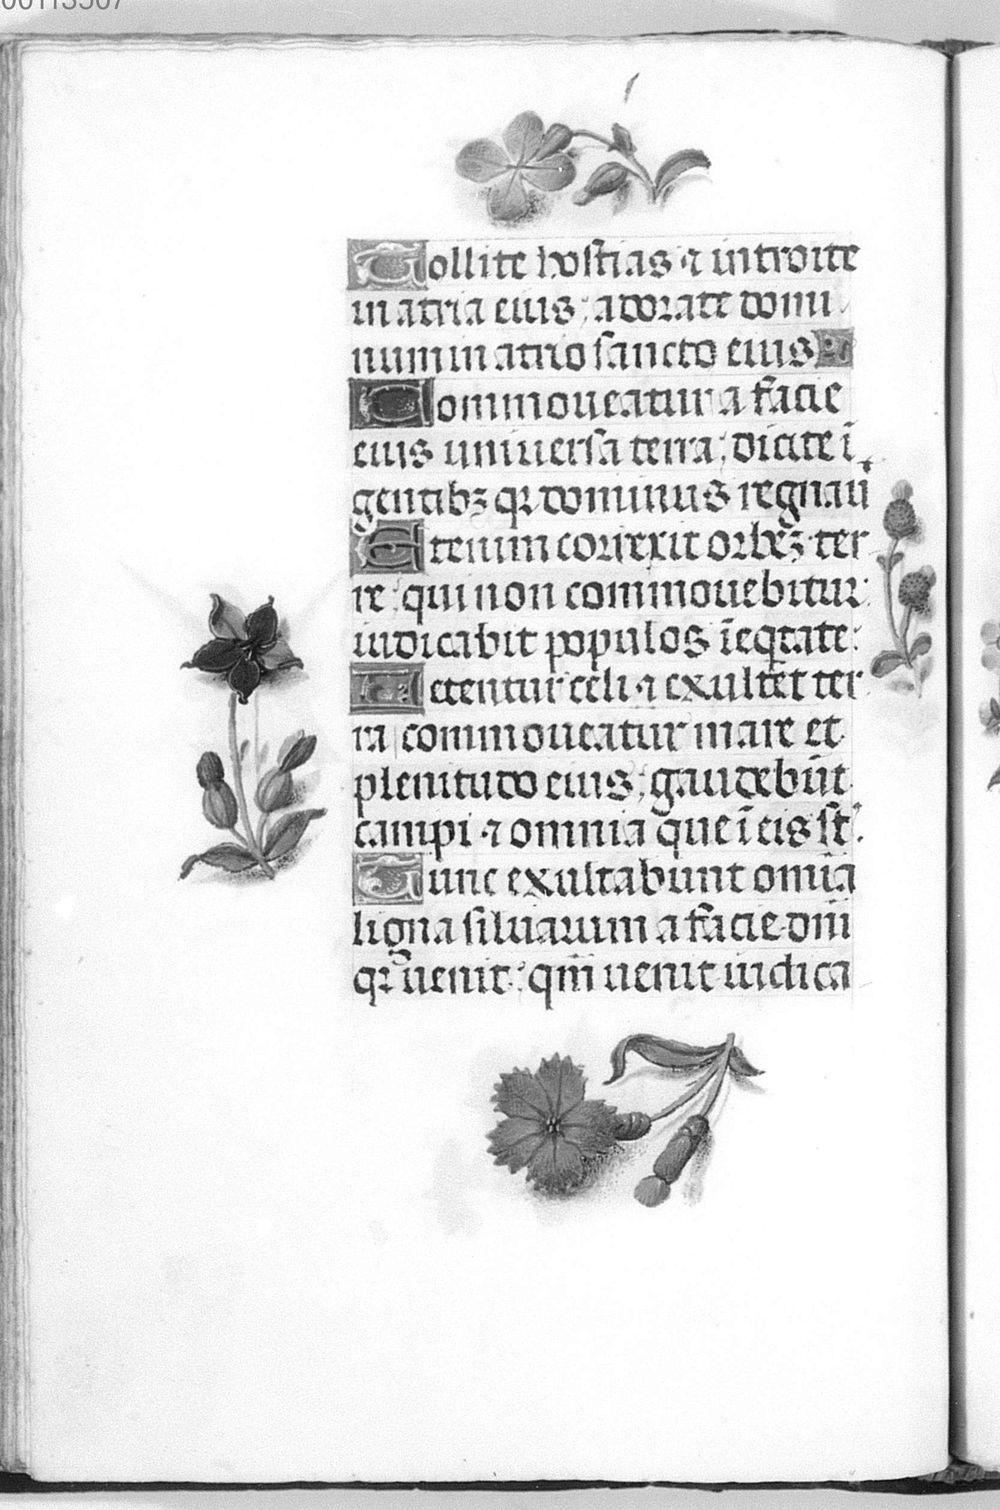 00113507
Tollite hostias ⁊ introite
in atria eius; adorate domi
num in atrio sancto eius
Commoueatur a facie
eius uniuersa terra; dicite ĩ
gentibꝫ qꝛ dominus regnaũ
Etenim correxit orbeꝫ ter
re: qui non commouebitur:
iudicabit populos ĩ eqtate:
Letentur celi ⁊ exultet ter
ra commoueatur mare et
plenitudo eius; gaudebũt
campi ⁊ omnia que ĩ eis st̃:
Tunc exultabunt om̃ia
ligna siluarum a facie dñi
qꝛ uenit: qm̃ uenit iudica